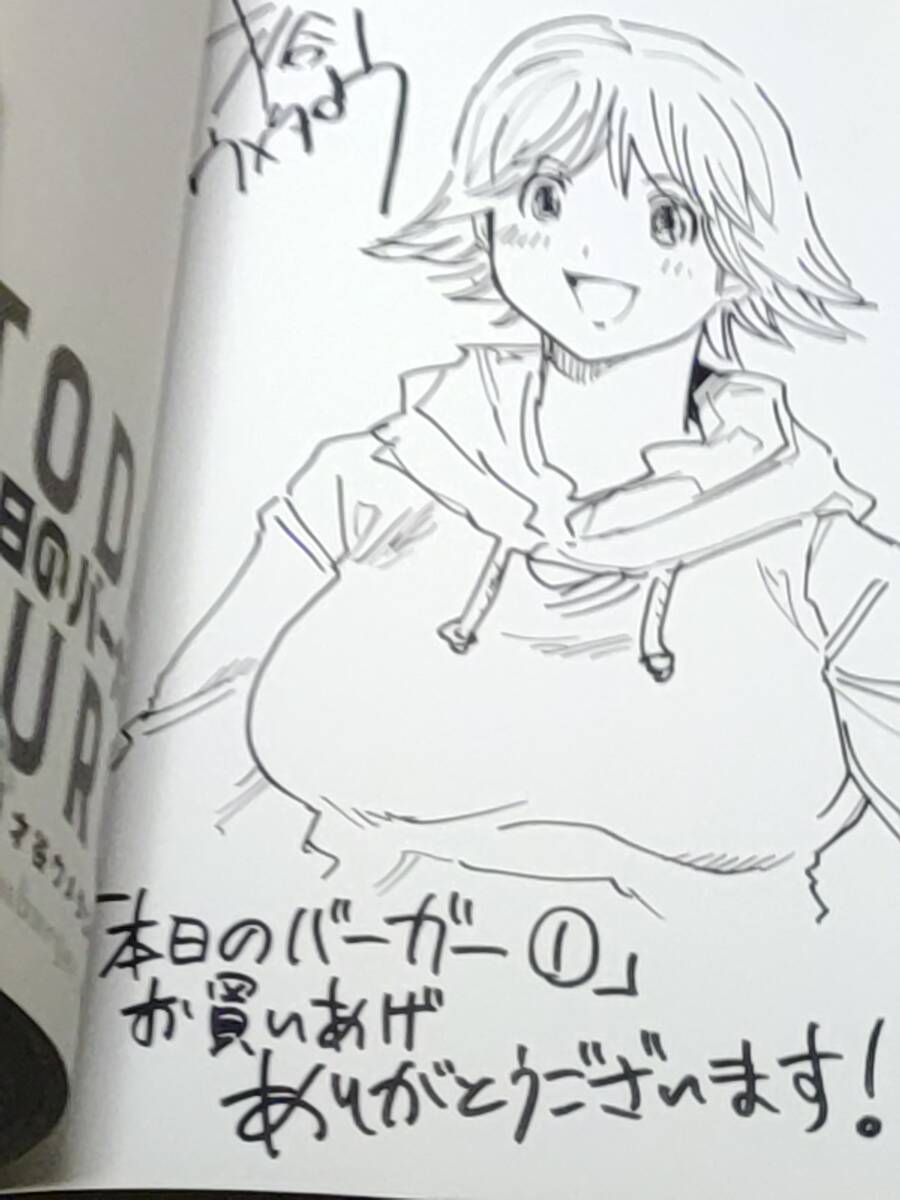 ウメタよう
TOD
日のバー
UR
「本日のバーガー①」
お買いあげ
ありがとうございます!